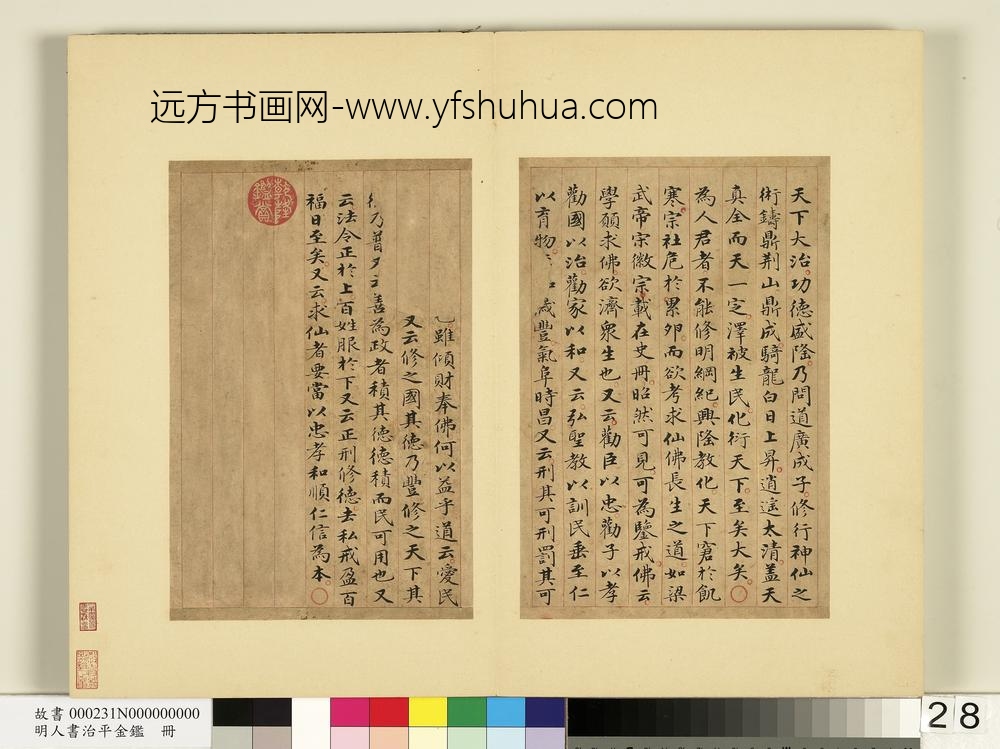 远方书画网-www.yfshuhua.com
天下大治功德盛隆乃問道廣成子修行神仙之
術鑄鼎荆山鼎成騎龍白日上昇逍遙太清蓋天
真全而天一定澤被生民化衍天下至矣大矣
為人君者不能修明綱紀興隆教化天下窘於飢
寒宗社危於累卵而欲考求仙佛長生之道如梁
武帝宋徽宗載在史冊昭然可見可為鑒戒佛云
學願求佛欲濟衆生也又云勸臣以忠勸子以孝
勸國以治勸家以和又云弘聖教以訓民垂至仁
以育物 歲豐氣阜時昌又云刑其可刑罰其可
雖傾財奉佛何以益乎道云愛民
又云修之國其德乃豐修之天下其
乃普 善為政者積其德德積而民可用也又
云法令正於上百姓服於下又云正刑修德去私戒盈百
福日至矣又云求仙者要當以忠孝和順仁信為本
乾隆鑑賞
故書 000231N000000000
明人書治平金鑑 冊
28